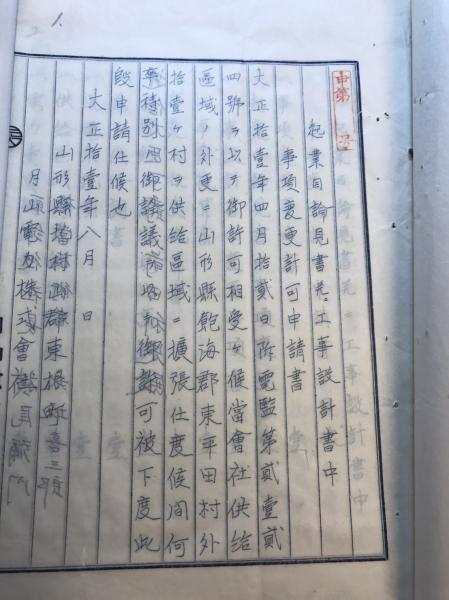 1.
申第 号
起業目論見書並ニ工事設計書中
事項変更許可申請書
大正拾壹年四月拾貳日附電監第貳壹貳
四號ヲ以テ御許可相受ケ候當會社供給
區域ノ外更ニ山形縣飽海郡東平田村外
拾壹ヶ村ヲ供給區域ニ擴張仕度候間何
卒特別ノ御詮議 御認可被下度此
段申請仕候也
大正拾壹年八月 日
山形縣 郡東根町
電 株式會社